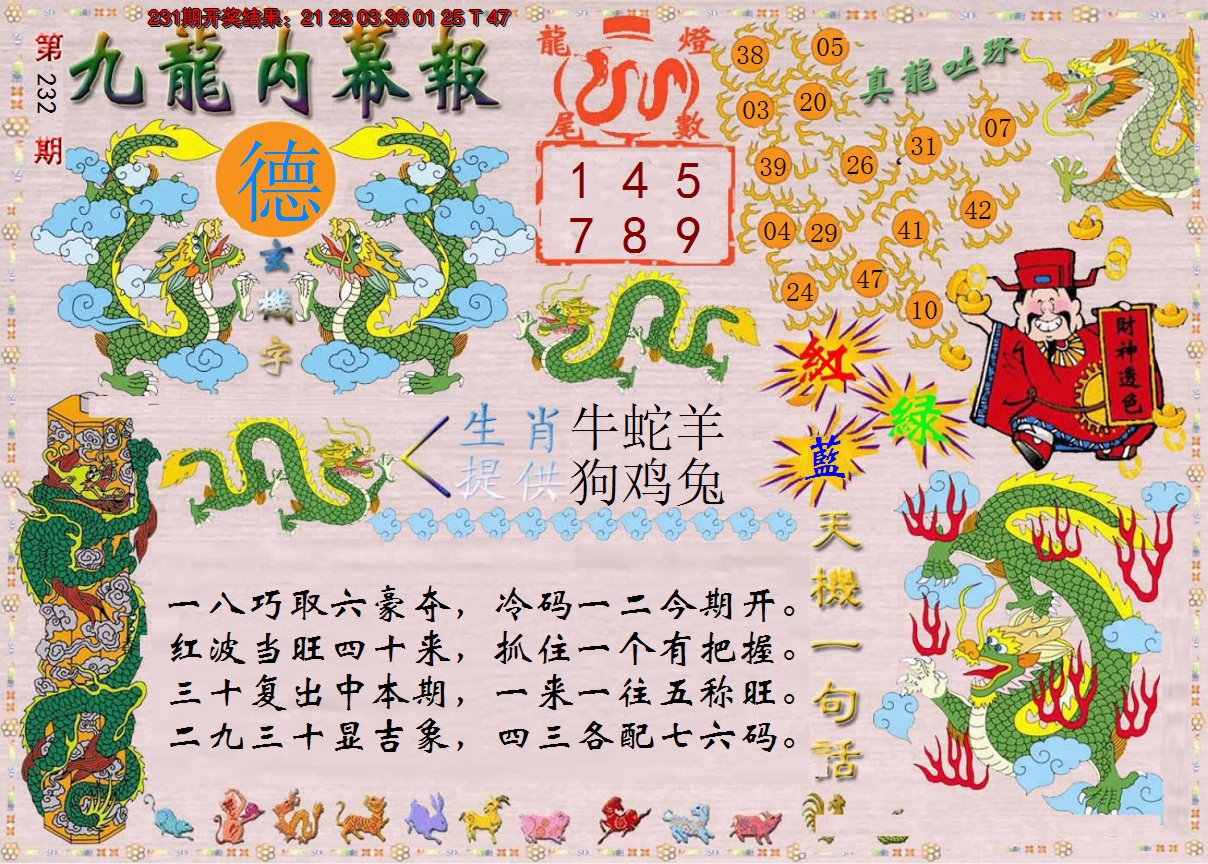 231期开奖结果：21 23 03 36 01 25 T 47
第
232
期
九龍内幕報
德
玄
機
字
龍 燈
尾 數
1 4 5
7 8 9
真龍吐珠
38
05
03
20
39
26
31
07
04
29
41
42
24
47
10
財神透色
紅
綠
藍
生肖 牛蛇羊
提供 狗鸡兔
天機一句话
一八巧取六豪夺，冷码一二今期开。
红波当旺四十来，抓住一个有把握。
三十复出中本期，一来一往五称旺。
二九三十显吉象，四三各配七六码。